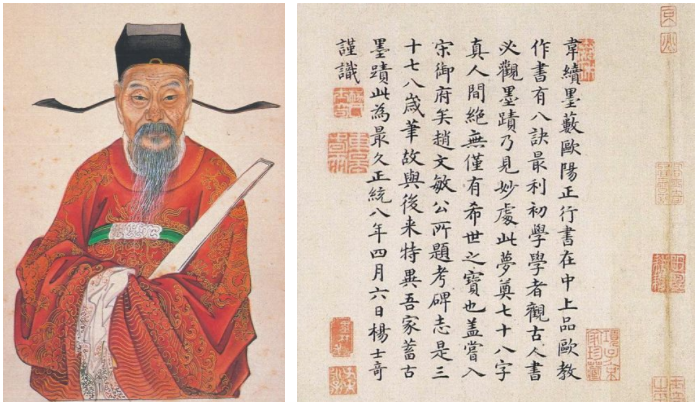 韋續墨藪歐陽正行書在中上品歐教
作書有八訣最利初學學者觀古人書
必觀墨蹟乃見妙處此夢奠七十八字
真人間絶無僅有希世之寶也盖嘗入
宋御府矣趙文敏公所題考碑志是三
十七八歲筆故與後来特異吾家蓄古
墨蹟此為最久正統八年四月六日楊士奇
謹識